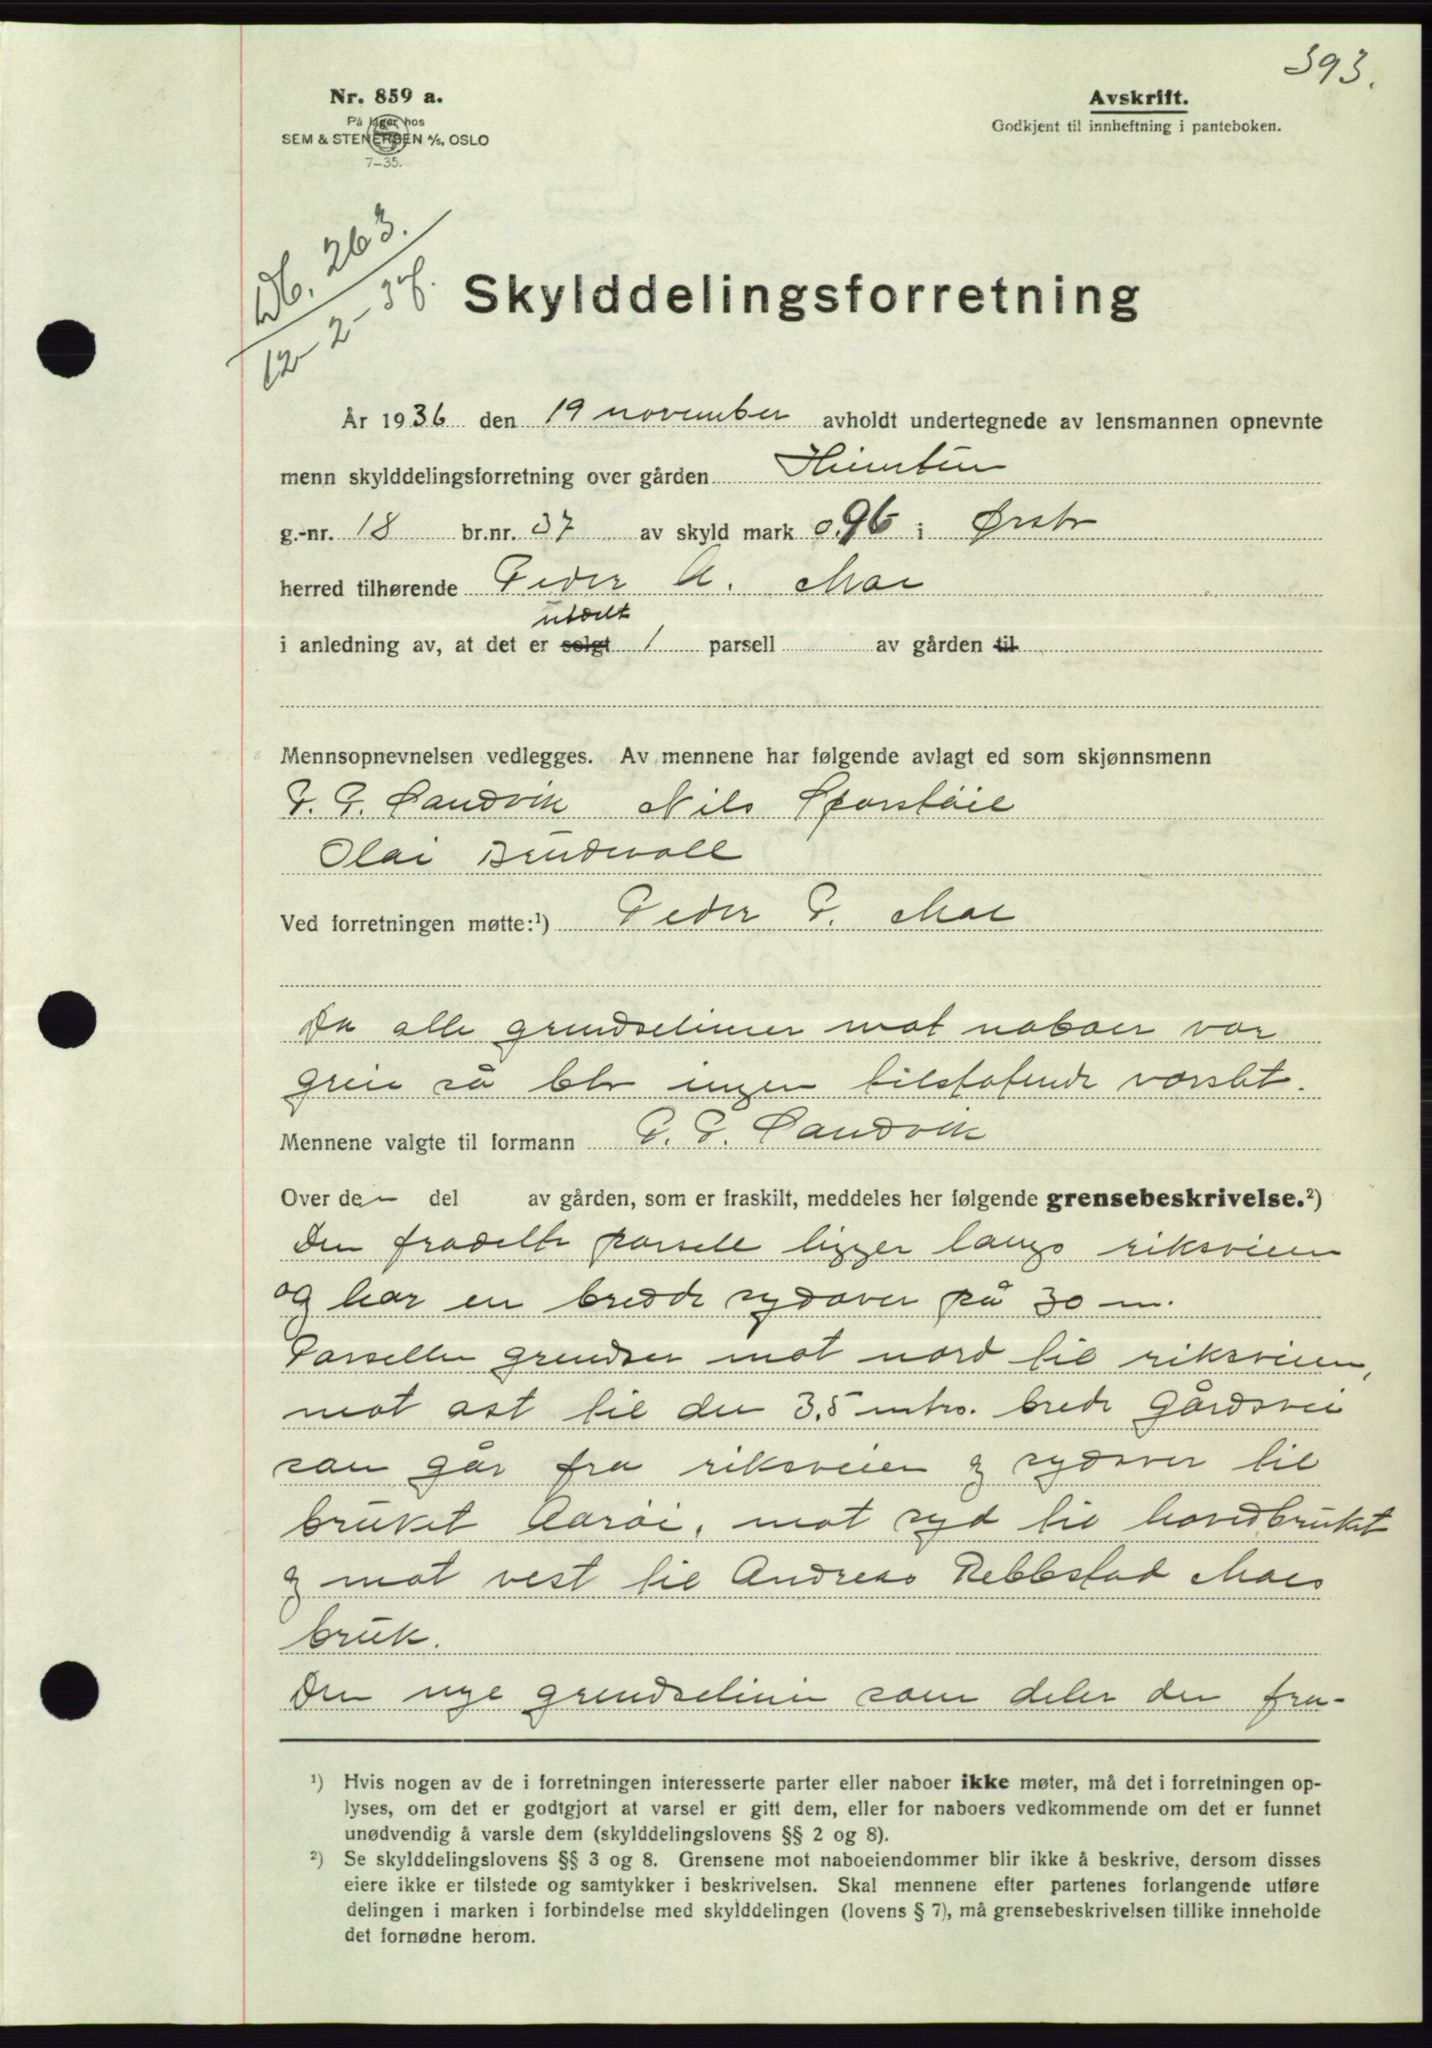 393.
Nr. 859 a.
På lager hos
SEM & STENERSEN A/S, OSLO
7-35.
Avskrift.
Godkjent til innheftning i panteboken.
Db. 263.
12-2-37.
Skylddelingsforretning
År 1936 den 19 november avholdt undertegnede av lensmannen opnevnte
menn skylddelingsforretning over gården
g.-nr. 18 br.nr. 37 av skyld mark 0.96 i Ørsta
herred tilhørende Peder A. Moe
utdelt
i anledning av, at det er solgt 1 parsell av gården til
Mennsopnevnelsen vedlegges. Av mennene har følgende avlagt ed som skjønnsmenn
P. P. Sandvik Nils Sporstøil
Olai Brudevoll
Ved forretningen møtte:¹) Peder P. Moe
Da alle grendselinier mot naboer var
greie så ble ingen tilstøtende varslet.
Mennene valgte til formann P. P. Sandvik
Over den del av gården, som er fraskilt, meddeles her følgende grensebeskrivelse.²)
Den fradelte parsell ligger langs riksveien
og har en bredde sydover på 30 m.
Parsellen grendser mot nord til riksveien,
mot øst til den 3,5 mtrs. brede gårdsvei
som går fra riksveien og sydover til
bruket Aarøi, mot syd til hovedbruket
og mot vest til Andreas Rebbestad Moes
bruk.
Den nye grendselinie som deler den fra-
¹) Hvis nogen av de i forretningen interesserte parter eller naboer ikke møter, må det i forretningen op-
lyses, om det er godtgjort at varsel er gitt dem, eller for naboers vedkommende om det er funnet
unødvendig å varsle dem (skylddelingslovens §§ 2 og 8).
²) Se skylddelingslovens §§ 3 og 8. Grensene mot naboeiendommer blir ikke å beskrive, dersom disses
eiere ikke er tilstede og samtykker i beskrivelsen. Skal mennene efter partenes forlangende utføre
delingen i marken i forbindelse med skylddelingen (lovens § 7), må grensebeskrivelsen tillike inneholde
det fornødne herom.